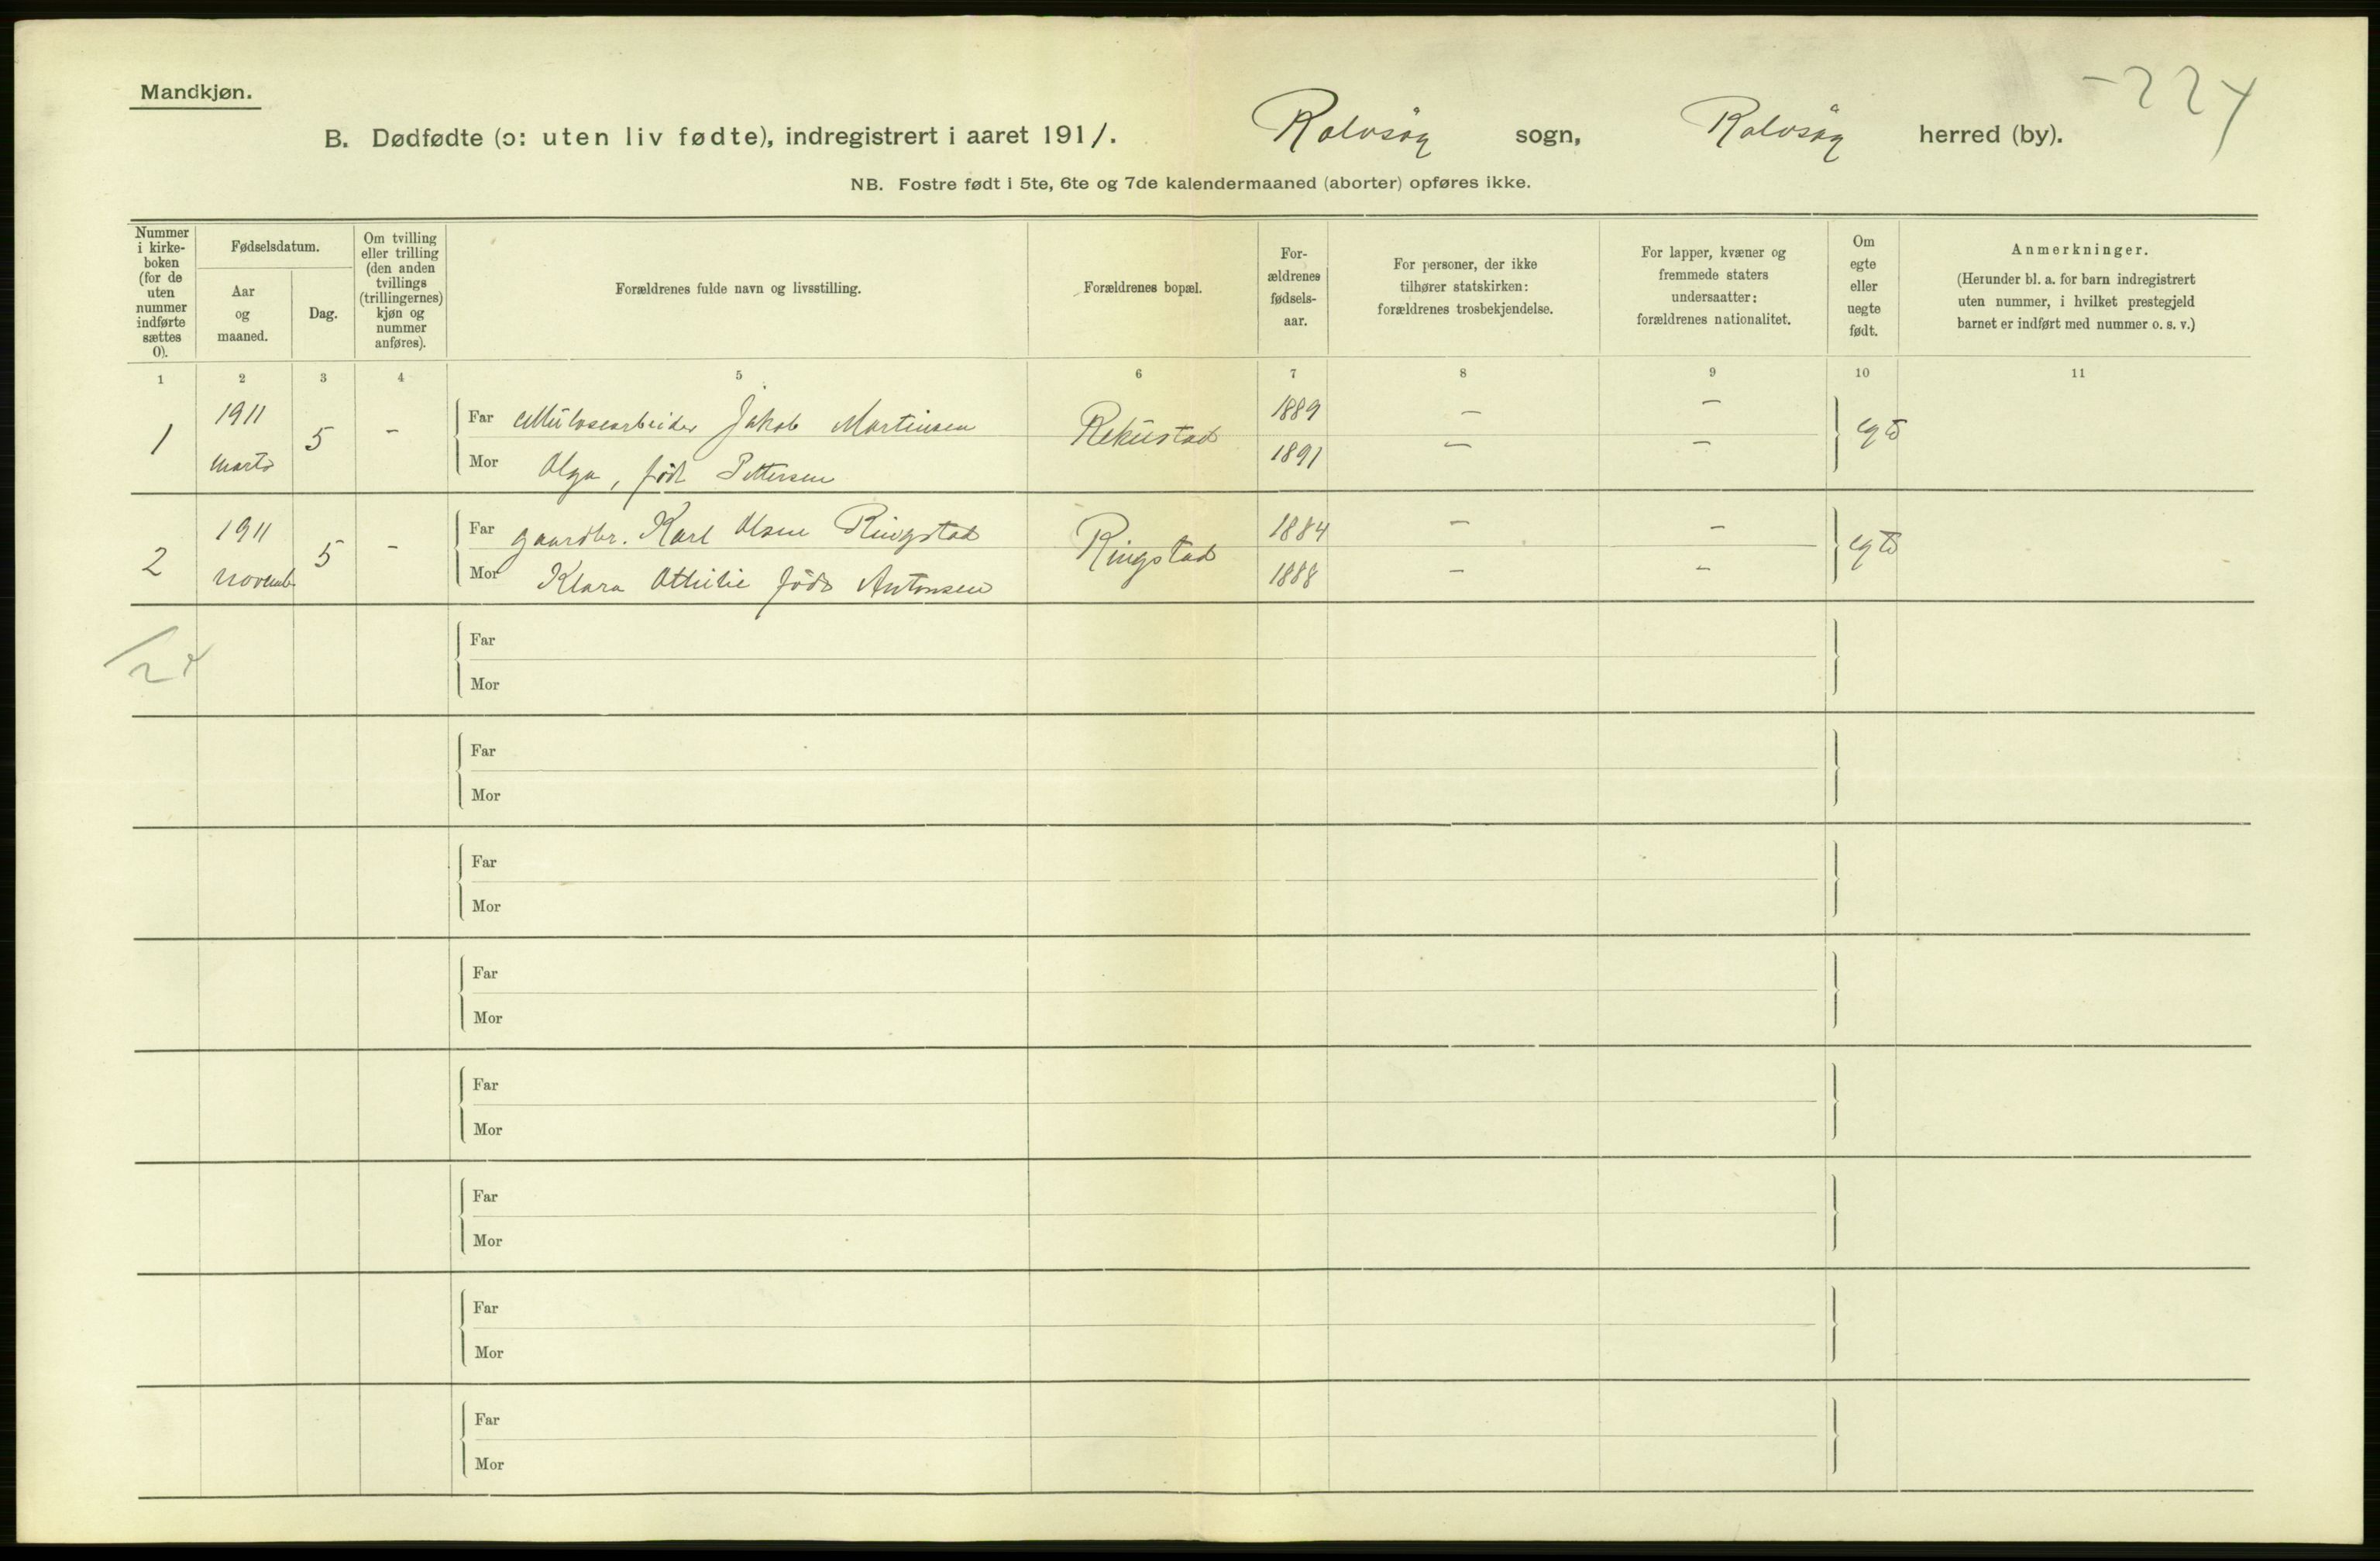 Mandkjøn.
-224
B. Dødfødte (ɔ: uten liv fødte), indregistrert i aaret 1911. Rolvsøy sogn, Rolvsøy herred (by).
NB. Fostre født i 5te, 6te og 7de kalendermaaned (aborter) opføres ikke.
Nummer i kirke-boken (for de uten nummer indførte sættes 0).
Fødselsdatum.
Aar og maaned.
Dag.
Om tvilling eller trilling (den anden tvillings (trillingernes) kjøn og nummer anføres).
Forældrenes fulde navn og livsstilling.
Forældrenes bopæl.
For-ældrenes fødsels-aar.
For personer, der ikke tilhører statskirken: forældrenes trosbekjendelse.
For lapper, kvæner og fremmede staters undersaatter: forældrenes nationalitet.
Om egte eller uegte født.
Anmerkninger.
(Herunder bl. a. for barn indregistrert uten nummer, i hvilket prestegjeld barnet er indført med nummer o. s. v.)
1 2 3 4 5 6 7 8 9 10 11
1 1911 marts 5 - Far Cellulosearbeider Jakob Martinsen 1889 — —
Mor Olga, född Pettersen Rekustad 1891 — — egte
2 1911 novemb 5 - Far gaardbr. Karl Olsen Ringstad 1884 — —
Mor Klara Othilie född Antonsen Ringstad 1888 — — egte
/24
Far
Mor
Far
Mor
Far
Mor
Far
Mor
Far
Mor
Far
Mor
Far
Mor
Far
Mor